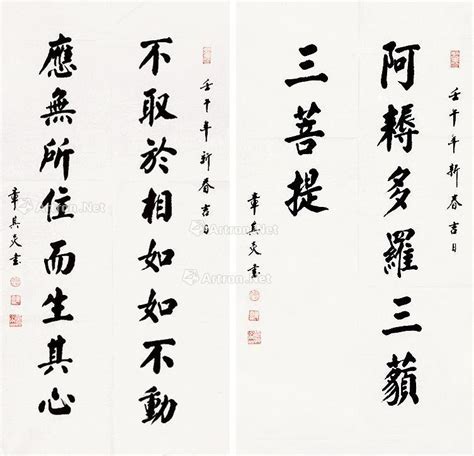 壬午年新春吉日
阿耨多羅三藐
三菩提
章其炎書
壬午年新春吉日
不取於相如如不動
應無所住而生其心
章其炎書
Artron.Net
Artron.Net
Artron.Net
Artron.Net